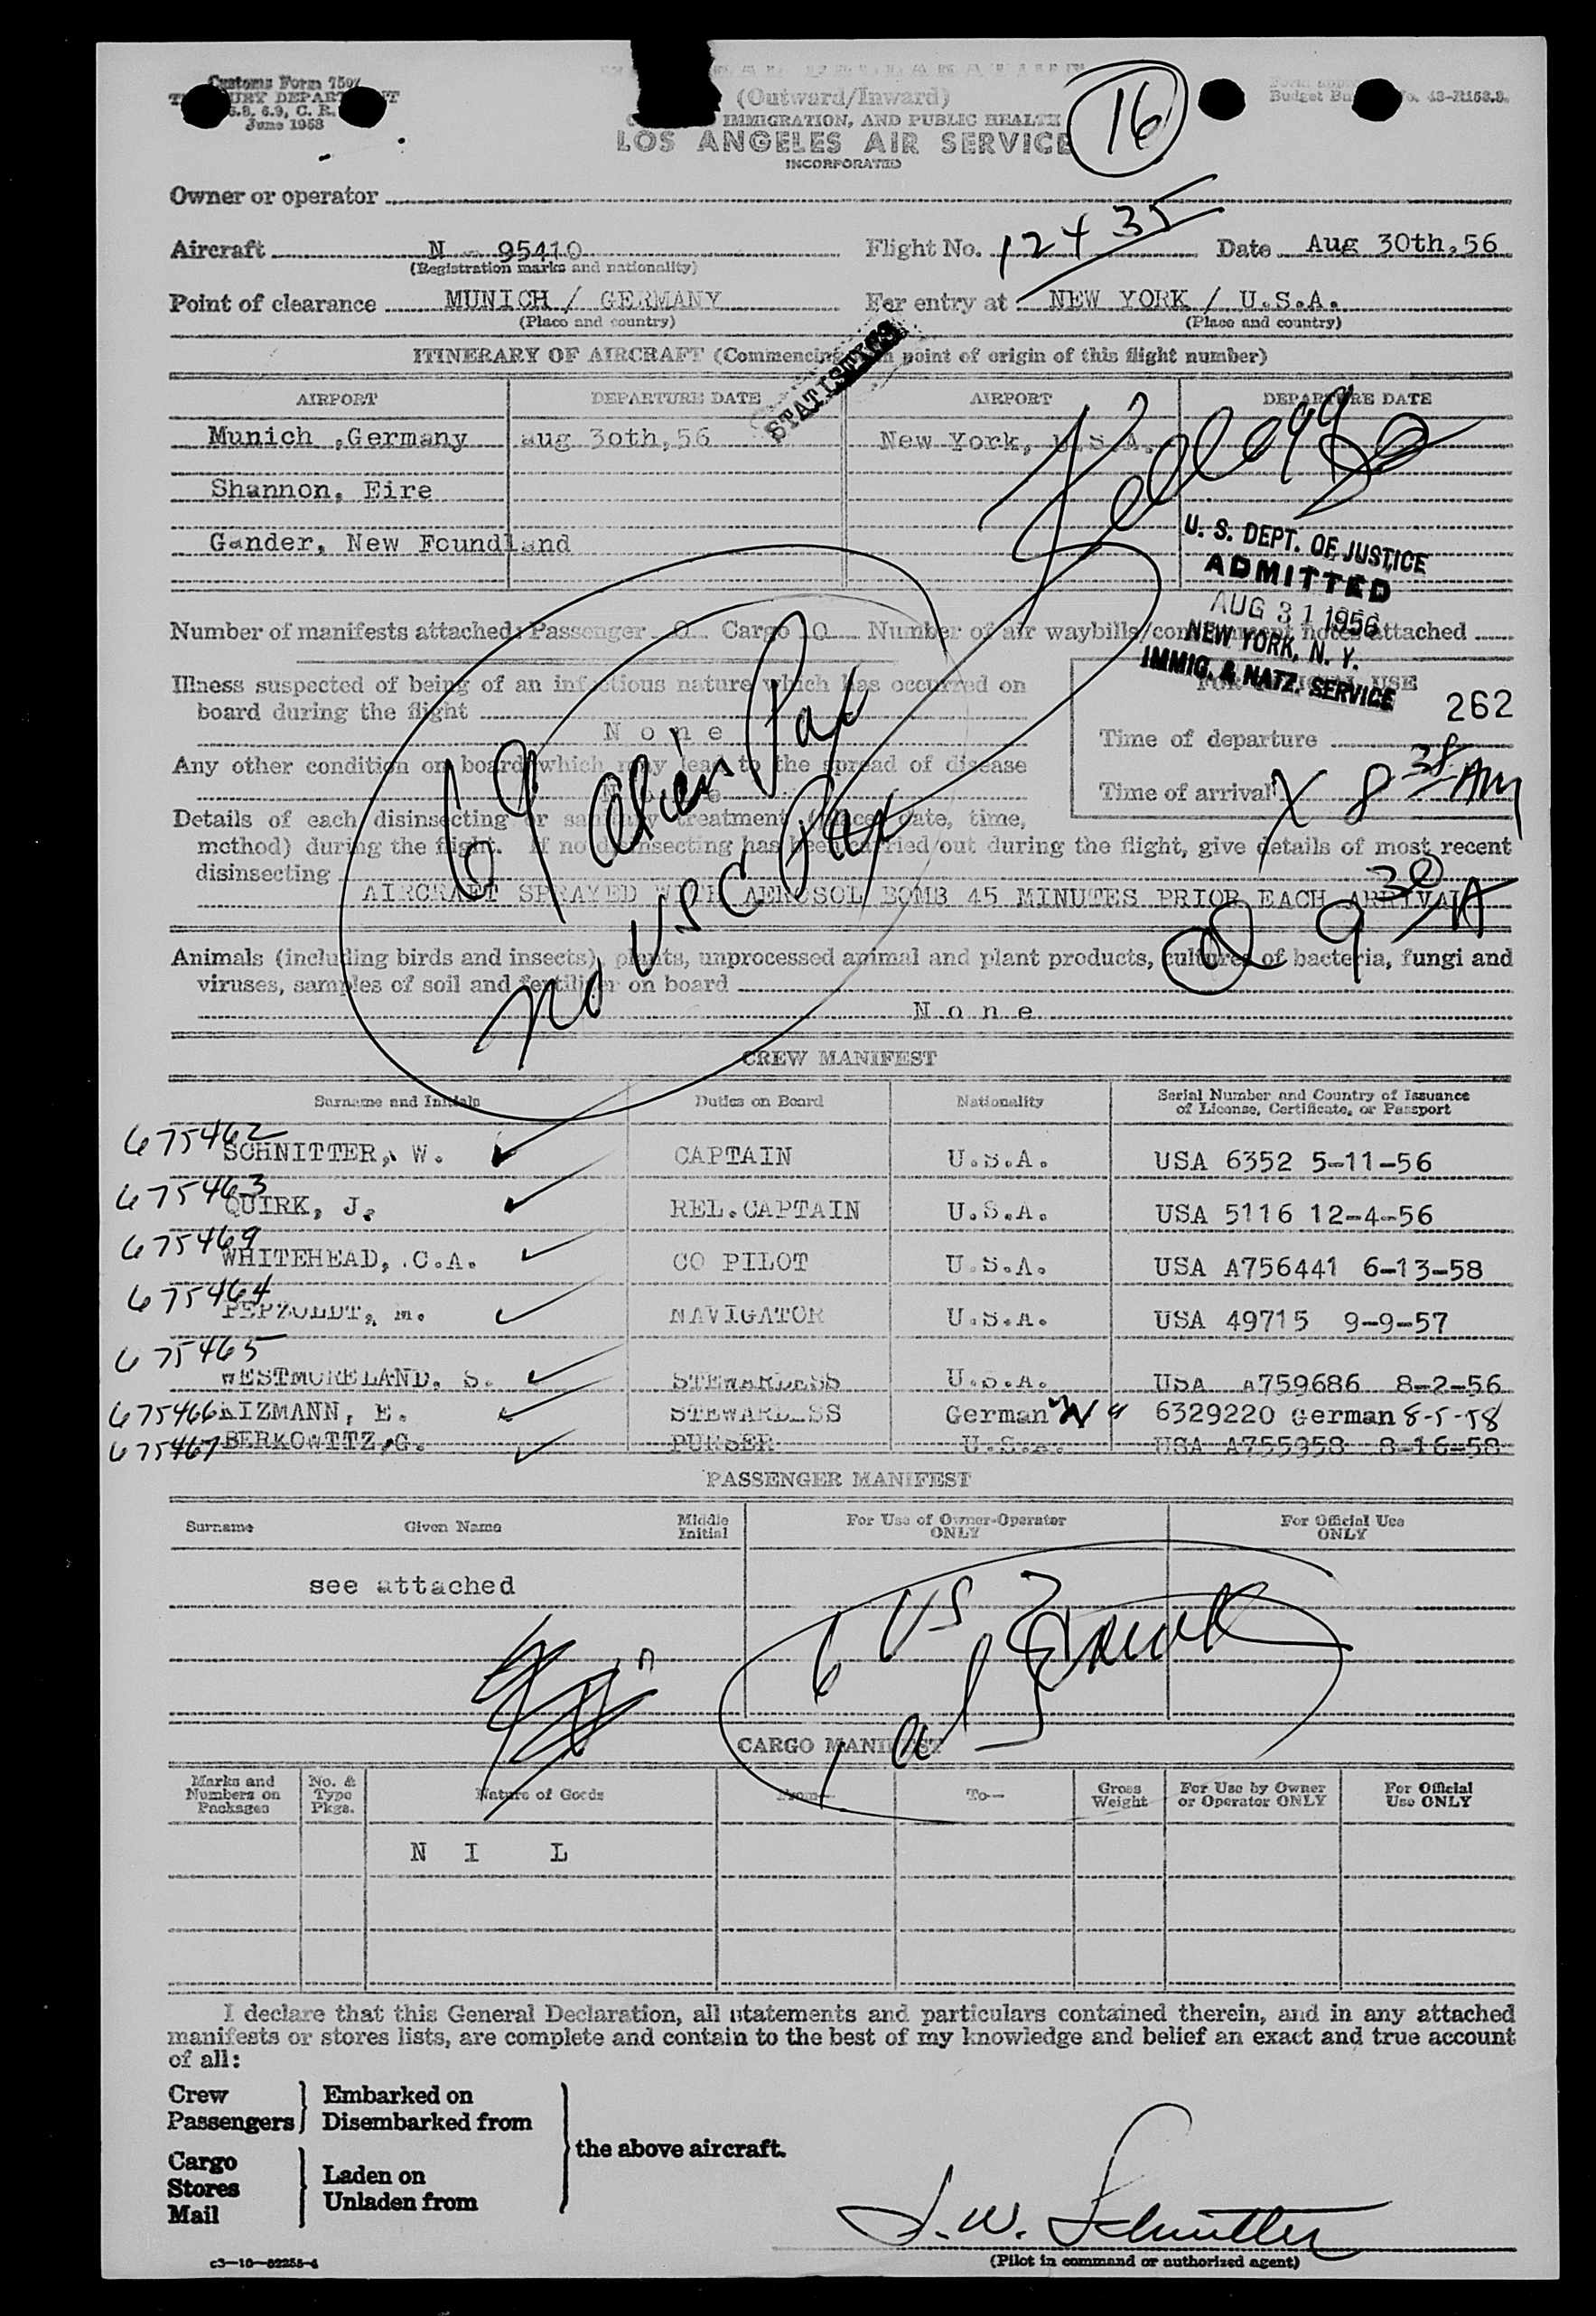 Customs Form 7507
TREASURY DEPARTMENT
6.8, 6.9, C. R.
June 1953
(Outward/Inward)
16
Budget Bu No. 43-R153.3.
IMMIGRATION, AND PUBLIC HEALTH
LOS ANGELES AIR SERVICE
INCORPORATED
Owner or operator
Aircraft N - 95410 Flight No. 12435 Date Aug 30th,56
(Registration marks and nationality)
Point of clearance MUNICH / GERMANY For entry at NEW YORK / U.S.A.
(Place and country) (Place and country)
ITINERARY OF AIRCRAFT (Commencing point of origin of this flight number)
STATISTICS
AIRPORT DEPARTURE DATE AIRPORT DEPARTURE DATE
Munich ,Germany aug 30th,56 New York, U.S.A.
Shannon, Eire
Gander, New Foundland
U. S. DEPT. OF JUSTICE
ADMITTED
AUG 31 1956
NEW YORK, N. Y.
IMMIG. & NATZ. SERVICE
Number of manifests attached: Passenger 0 Cargo 0 Number of air waybills/consignment notes attached
Illness suspected of being of an infectious nature which has occurred on
board during the flight
None
FOR OFFICIAL USE
262
Time of departure
Any other condition on board which may lead to the spread of disease
None
Time of arrival X 8 38 AM
Details of each disinsecting or sanitary treatment (place, date, time,
method) during the flight. If no disinsecting has been carried out during the flight, give details of most recent
disinsecting
AIRCRAFT SPRAYED WITH AEROSOL BOMB 45 MINUTES PRIOR EACH ARRIVAL
9 30 A
69 alien Pax
no USC Pax
Animals (including birds and insects), plants, unprocessed animal and plant products, cultures of bacteria, fungi and
viruses, samples of soil and fertilizer on board
None
CREW MANIFEST
Surname and Initials Duties on Board Nationality Serial Number and Country of Issuance
of License, Certificate, or Passport
675462 SCHNITTER, W. CAPTAIN U.S.A. USA 6352 5-11-56
675463 QUIRK, J. REL.CAPTAIN U.S.A. USA 5116 12-4-56
675469 WHITEHEAD, .C.A. CO PILOT U.S.A. USA A756441 6-13-58
675464 PEPZOLDT, M. NAVIGATOR U.S.A. USA 49715 9-9-57
675465 WESTMORELAND, S. STEWARDESS U.S.A. USA A759686 8-2-56
675466 STEWARDESS German 6329220 German 8-5-58
675467 BERKOWITZ,G. PURSER U.S.A. USA A755358 8-16-58
PASSENGER MANIFEST
Surname Given Name Middle
Initial For Use of Owner-Operator
ONLY For Official Use
ONLY
see attached
6 US
1 al
CARGO MANIFEST
Marks and
Numbers on
Packages No. &
Type
Pkgs. Nature of Goods From— To— Gross
Weight For Use by Owner
or Operator ONLY For Official
Use ONLY
N I L
I declare that this General Declaration, all statements and particulars contained therein, and in any attached
manifests or stores lists, are complete and contain to the best of my knowledge and belief an exact and true account
of all:
Crew Embarked on
Passengers Disembarked from
the above aircraft.
Cargo
Stores Laden on
Mail Unladen from
J. W. Schnitter
(Pilot in command or authorized agent)
c3—10—62255-4